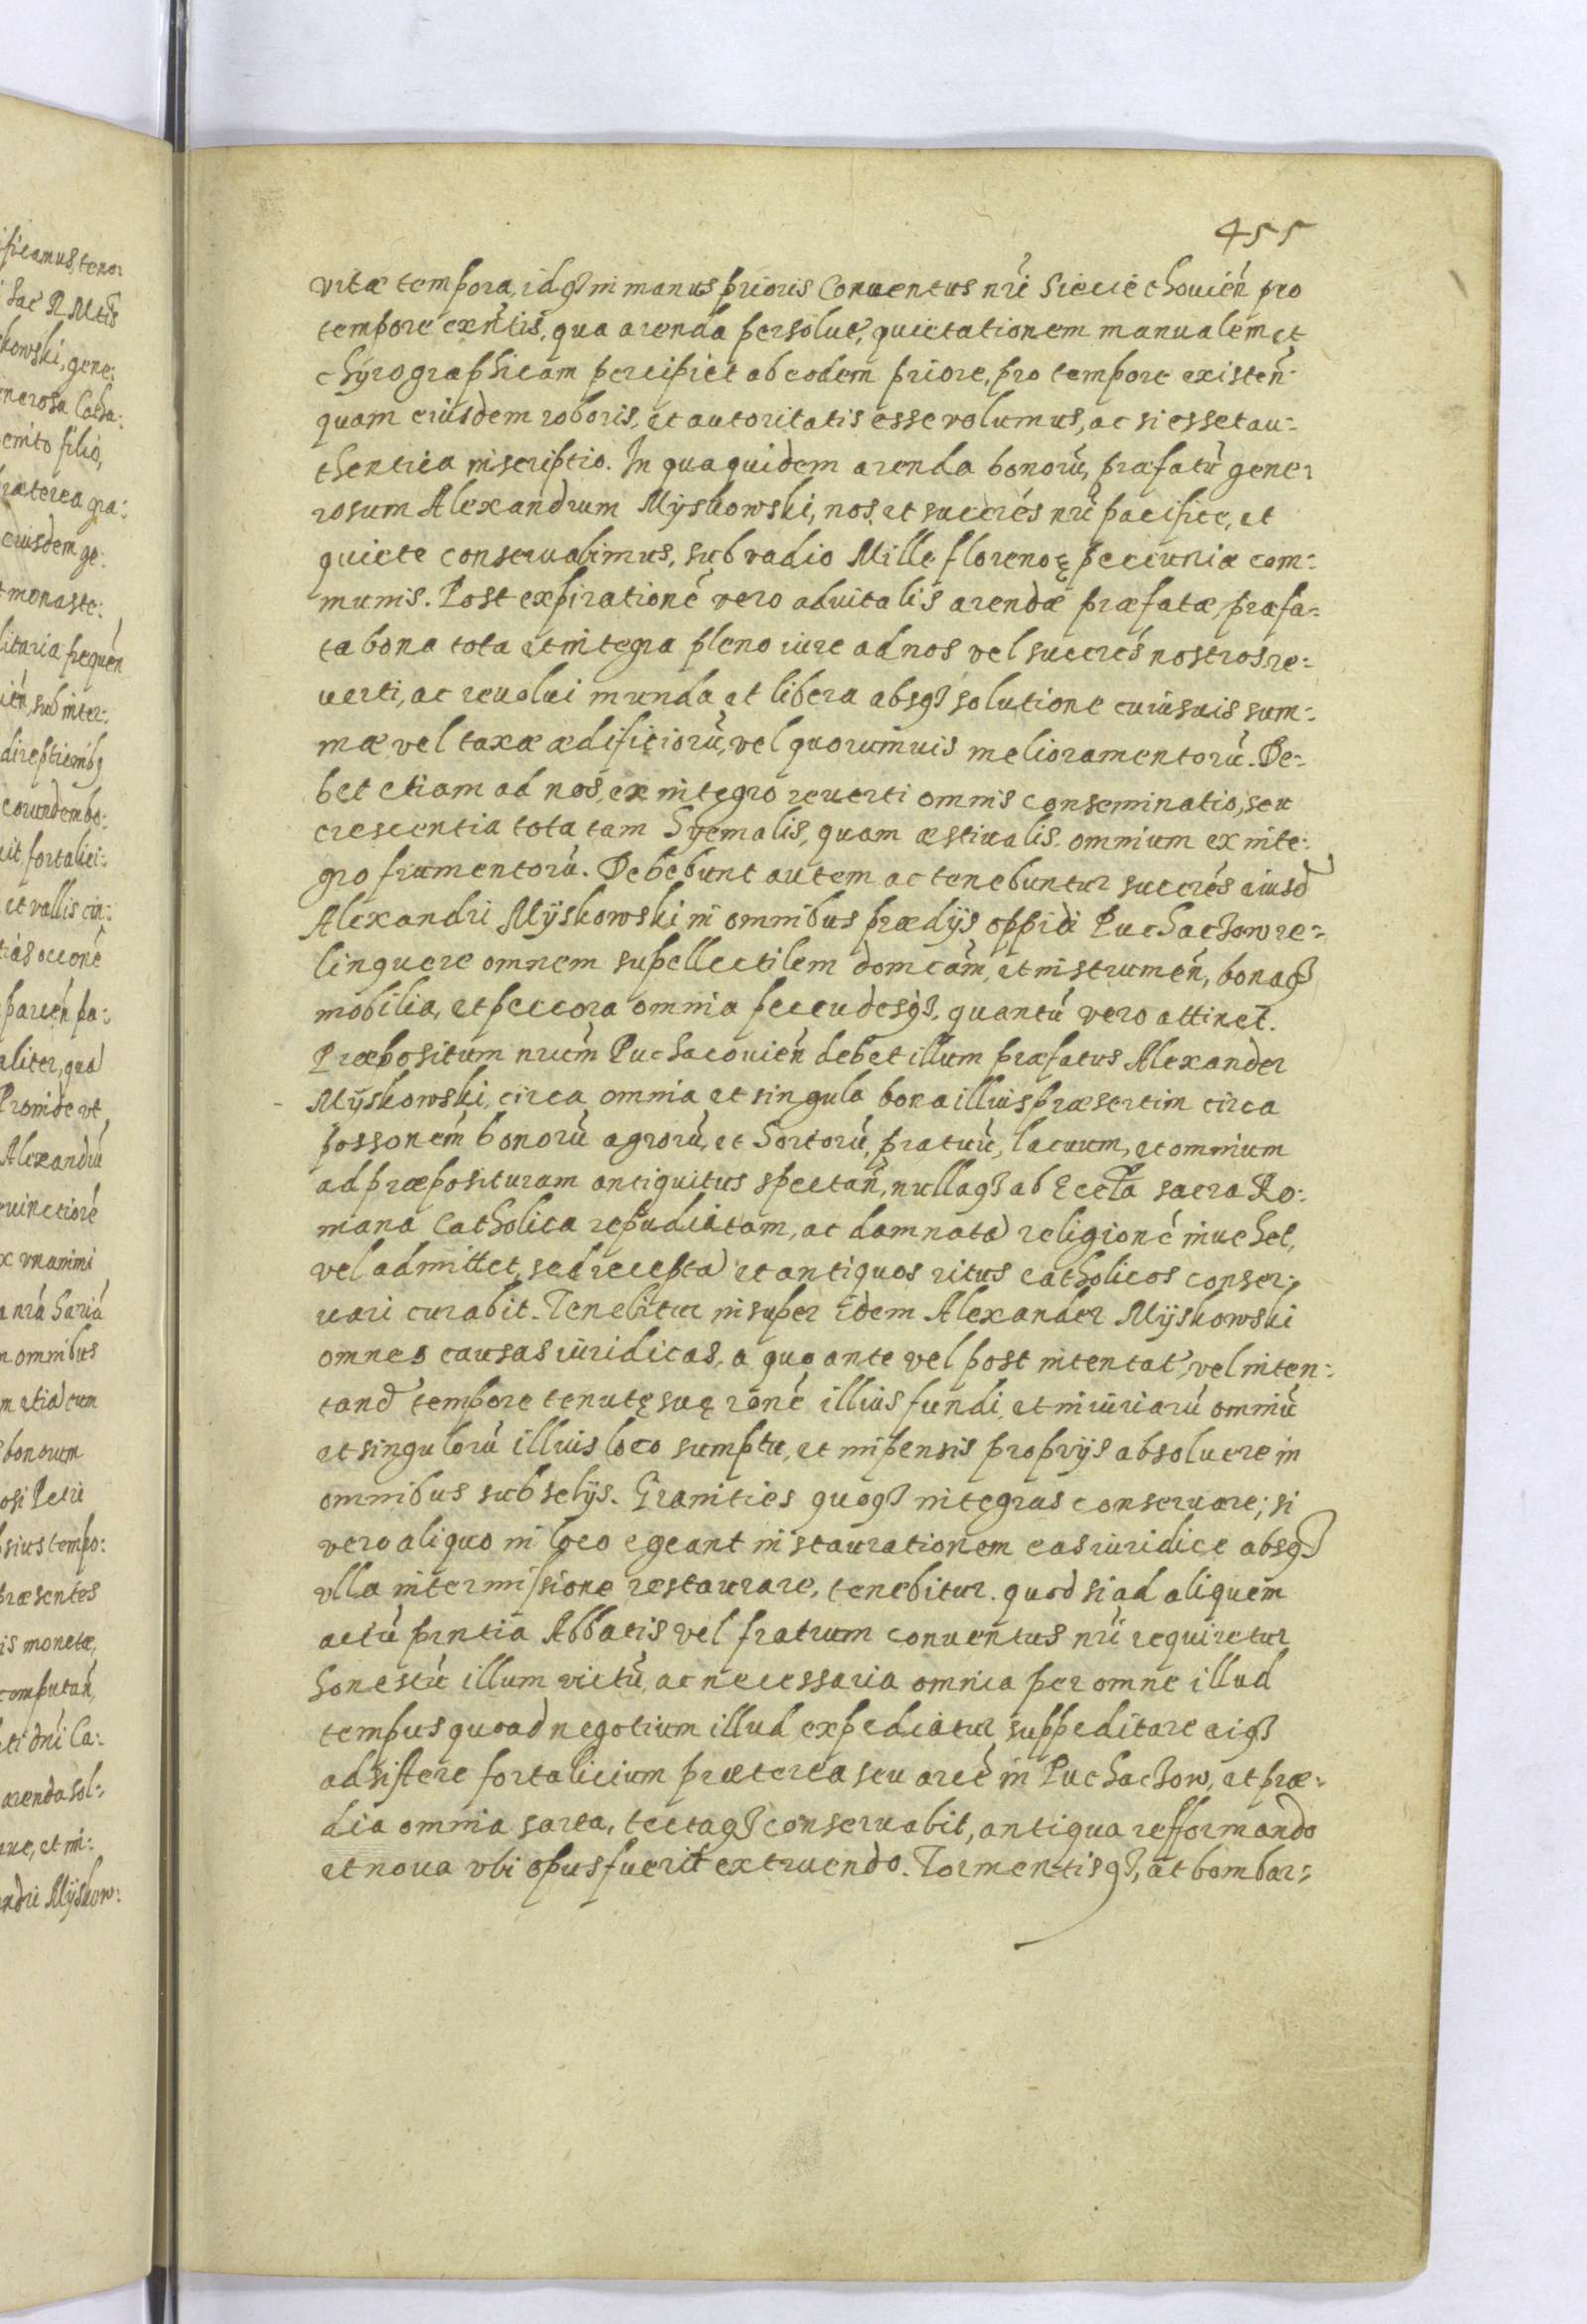 455
vitæ tempora, idq3 in manus prioris Conuentus nri Sieciechouień pro
tempore exntis, qua arenda persolut, quietationem manualem et
chyrographicam percipiet ab eodem priore, pro tempore existeń
quam eiusdem roboris, et autoritatis esse volumus, ac si esset au=
thentica inscriptio. In qua quidem arenda bonorũ, præfatũ gene
rosum Alexandrum Myskowski, nos et succrés nri pacifice, et
quiete conseruabimus, sub vadio Mille florenoꝝ pecuniæ com=
munis. Post expirationẽ vero aduitalis arendæ præfatæ, præfa=
ta bona tota et integra pleno iure ad nos vel succrés nostros re=
uerti, ac reuolui munda et libera absq3 solutione cuiusuis sum=
mæ vel taxæ ædificiorũ, vel quorumuis melioramentorũ. De=
bet etiam ad nos, ex integro reuerti omnis conseminatio, seu
crescentia tota tam hyemalis, quam æstiualis, omnium ex inte=
gro frumentorũ. Debebunt autem ac tenebuntur succrés eiusd
Alexandri Myskowski in omnibus prædijs oppidi Puchachow re=
linquere omnem supellectilem domcam, et instrumeń, bonaq3
mobilia, et peccora omnia pecudesq3, quantũ vero attinet.
Præpositum nrum Puchacouień debet illum præfatus Alexander
Myskowski, circa omnia et singula bona illius præsertim circa
possonem bonorũ agrorũ, et hortorũ, pratuũ, lacuum, et omnium
ad præposituram antiquitus spectań, nullaq3 ab Eccla sacra Ro=
mana Catholica repudiatam, ac damnatã religionẽ inuehet,
vel admittet, sed receptã et antiquos ritus catholicos conser=
uari curabit. Tenebitur insuper Idem Alexander Myskowski
omnes causas iuridicas, a quo ante vel post intentat, vel inten=
tand tempore tenutę suę ronẽ illius fundi, et iniuriarũ omniũ
et singulorũ illius loco sumptu, et impensis proprijs absoluere in
omnibus subselijs. Granities quoq3 integras conseruare; si
vero aliquo in loco egeant instaurationem eas iuridice absq3
vlla intermissione restaurare, tenebitur. quod si ad aliquem
actũ prntia Abbatis vel fratrum conuentus nri requiretur
honestũ illum victũ, ac necessaria omnia per omne illud
tempus quoad negotium illud expediatur, suppeditare eiq3
adsistere fortalicium præterea seu arcẽ in Puchachow, et præ=
dia omnia sarta, tectaq3 conseruabit, antiqua refformando
et noua vbi opus fuerit extruendo. Tormentisq3, et bombar=